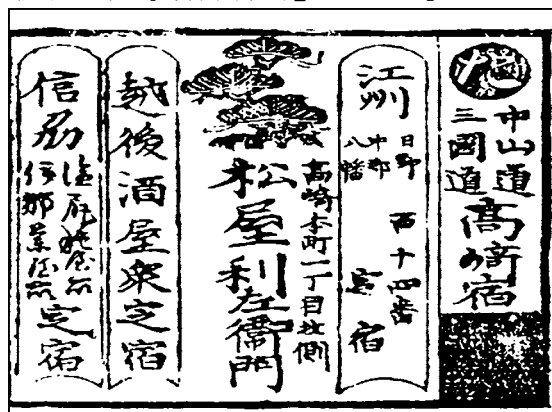 中山道
三國道
高崎宿
江州
日野
中郡
八幡
西十四番
定宿
高崎本町一丁目北側
松屋利左衛門
越後酒屋衆定宿
信州
定宿